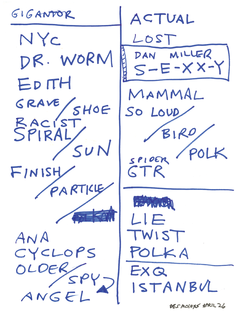 GIGANTOR
NYC
DR. WORM
EDITH
GRAVE/SHOE
RACIST
SPIRAL/SUN
FINISH/PARTICLE
ANA
CYCLOPS
OLDER/SPY
ANGEL
ACTUAL
LOST
DAN MILLER
S-E-XX-Y
MAMMAL
SO LOUD/BIRD/POLK
SPIDER
GTR
LIE
TWIST
POLKA
EXQ
ISTANBUL